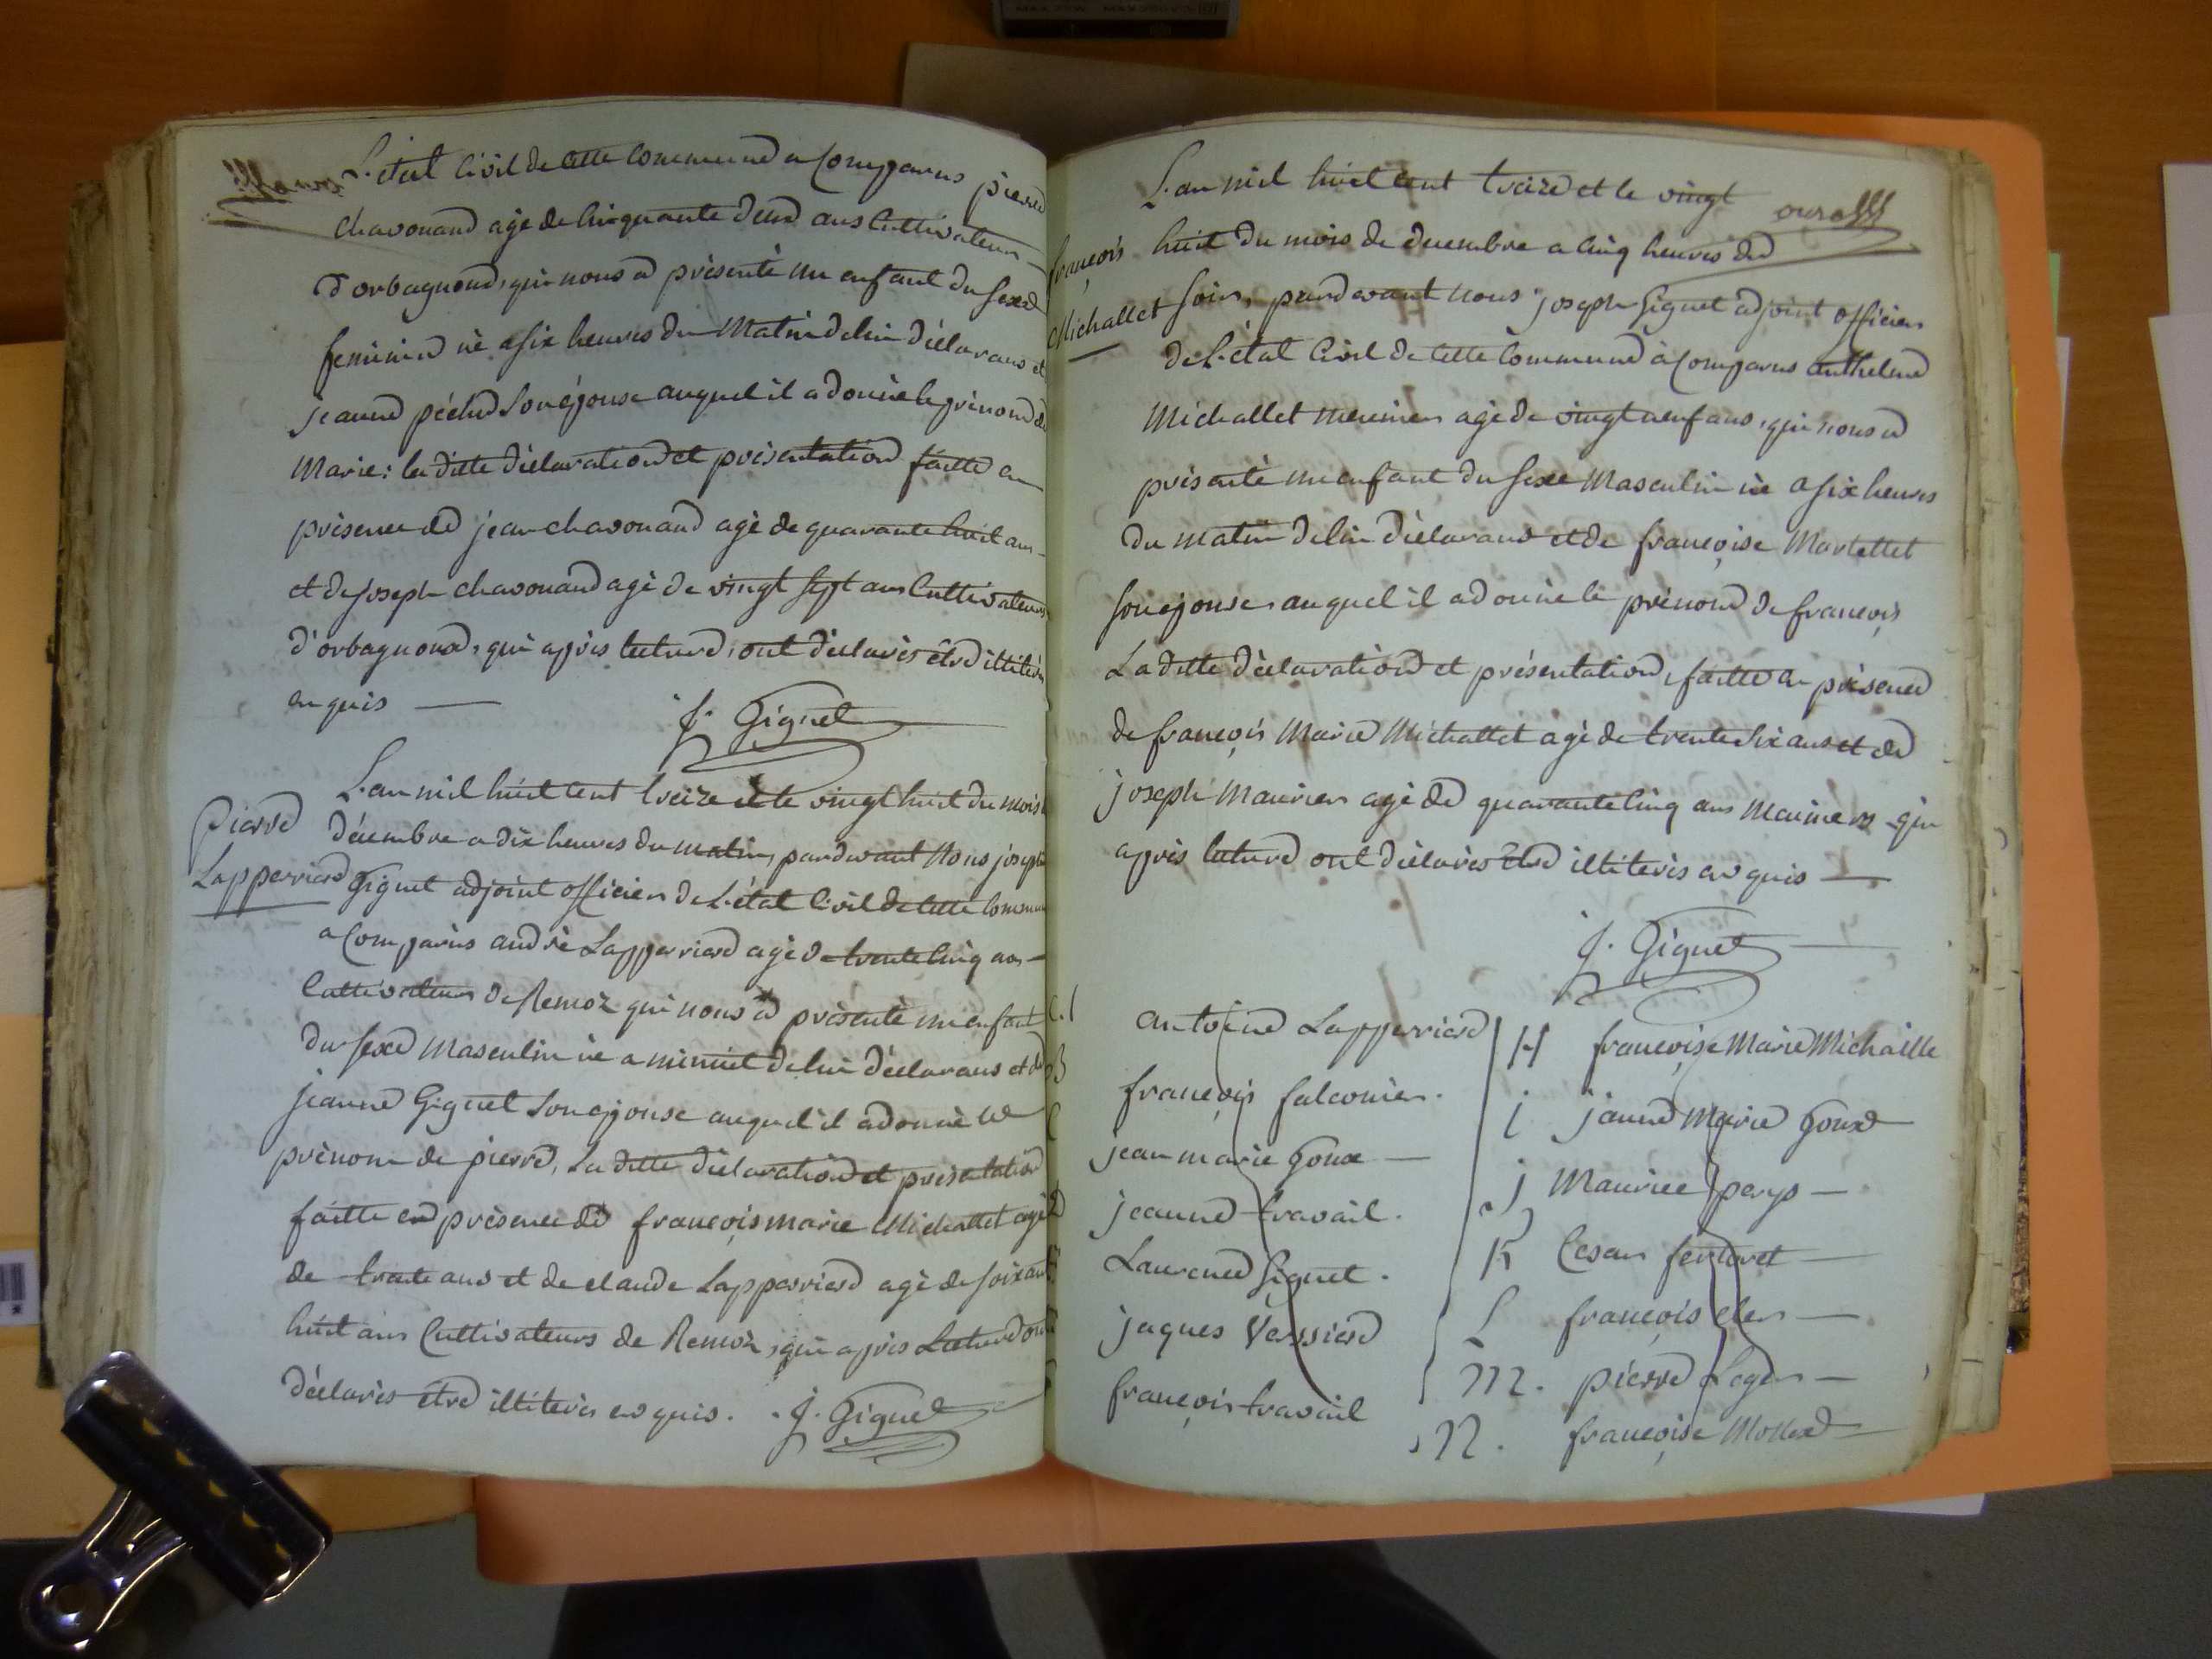 L'état Civil de cette Commune a Comparus pierre
chavonand agé de Cinquante deux ans Cultivateur
d'orbagnoud, qui nous a présenté un enfant du sexe
feminin né a six heures du Matin de lui déclarans et
jeanne péclud son épouse auquel il a donné le prénom de
Marie: la ditte déclaration et présentation faitte en
présence de jean chavonand agé de quarante huit ans
et de joseph chavonand agé de vingt sept ans Cultivateurs
d'orbagnoud, qui après lecture, ont déclarés être illitérés
enquis
J. Giguet
L'an mil huit cent treize et le vingt huit du mois
Pierre
décembre a dix heures du matin, pardevant Nous joseph
Lapperriere
Giguet adjoint officier de L'état Civil de cette Commune
a Comparus andré Lapperriere agé de trente Cinq ans
Cultivateur de Remoz qui nous a présenté un enfant
du sexe masculin né a minuit de lui déclarans et de
jeanne Giguet son épouse auquel il a donné le
prénom de pierre, La ditte déclaration et présentation
faitte en présence de françois marie Michallet agé
de trente ans et de claude Lapperriere agé de soixante
huit ans Cultivateurs de Remoz, qui après Lecture ont
déclarés être illitérés enquis. J. Giguet
L'an mil huit cent treize et le vingt
onze
françois
huit du mois de decembre a Cinq heures du
Michallet
soir, pardevant nous joseph Giguet adjoint officier
de L'état Civil de cette Commune à Comparus anthelme
Michallet meunier agé de vingt neuf ans, qui nous a
présenté un enfant du sexe Masculin né a six heures
du matin de lui déclarans et de françoise Martellet
son épouse, auquel il a donné le prénom de françois
La ditte déclaration et présentation, faitte en présence
de françois Marie Michallet agé de trente six ans et de
joseph Maurier agé de quarante Cinq ans qui
après lecture ont déclarés être illitérés enquis
J. Giguet
antoine Lapperriere
H françoise Marie Michaille
françois falconier.
i janne Marie Goux
jean marie Goux
j Maurice perys
jeanne travail.
K Cesar
Laurence Giguet.
L françois cler
jaques Veyssiere
M. pierre Leger
françois travail
N. françoise Mollex